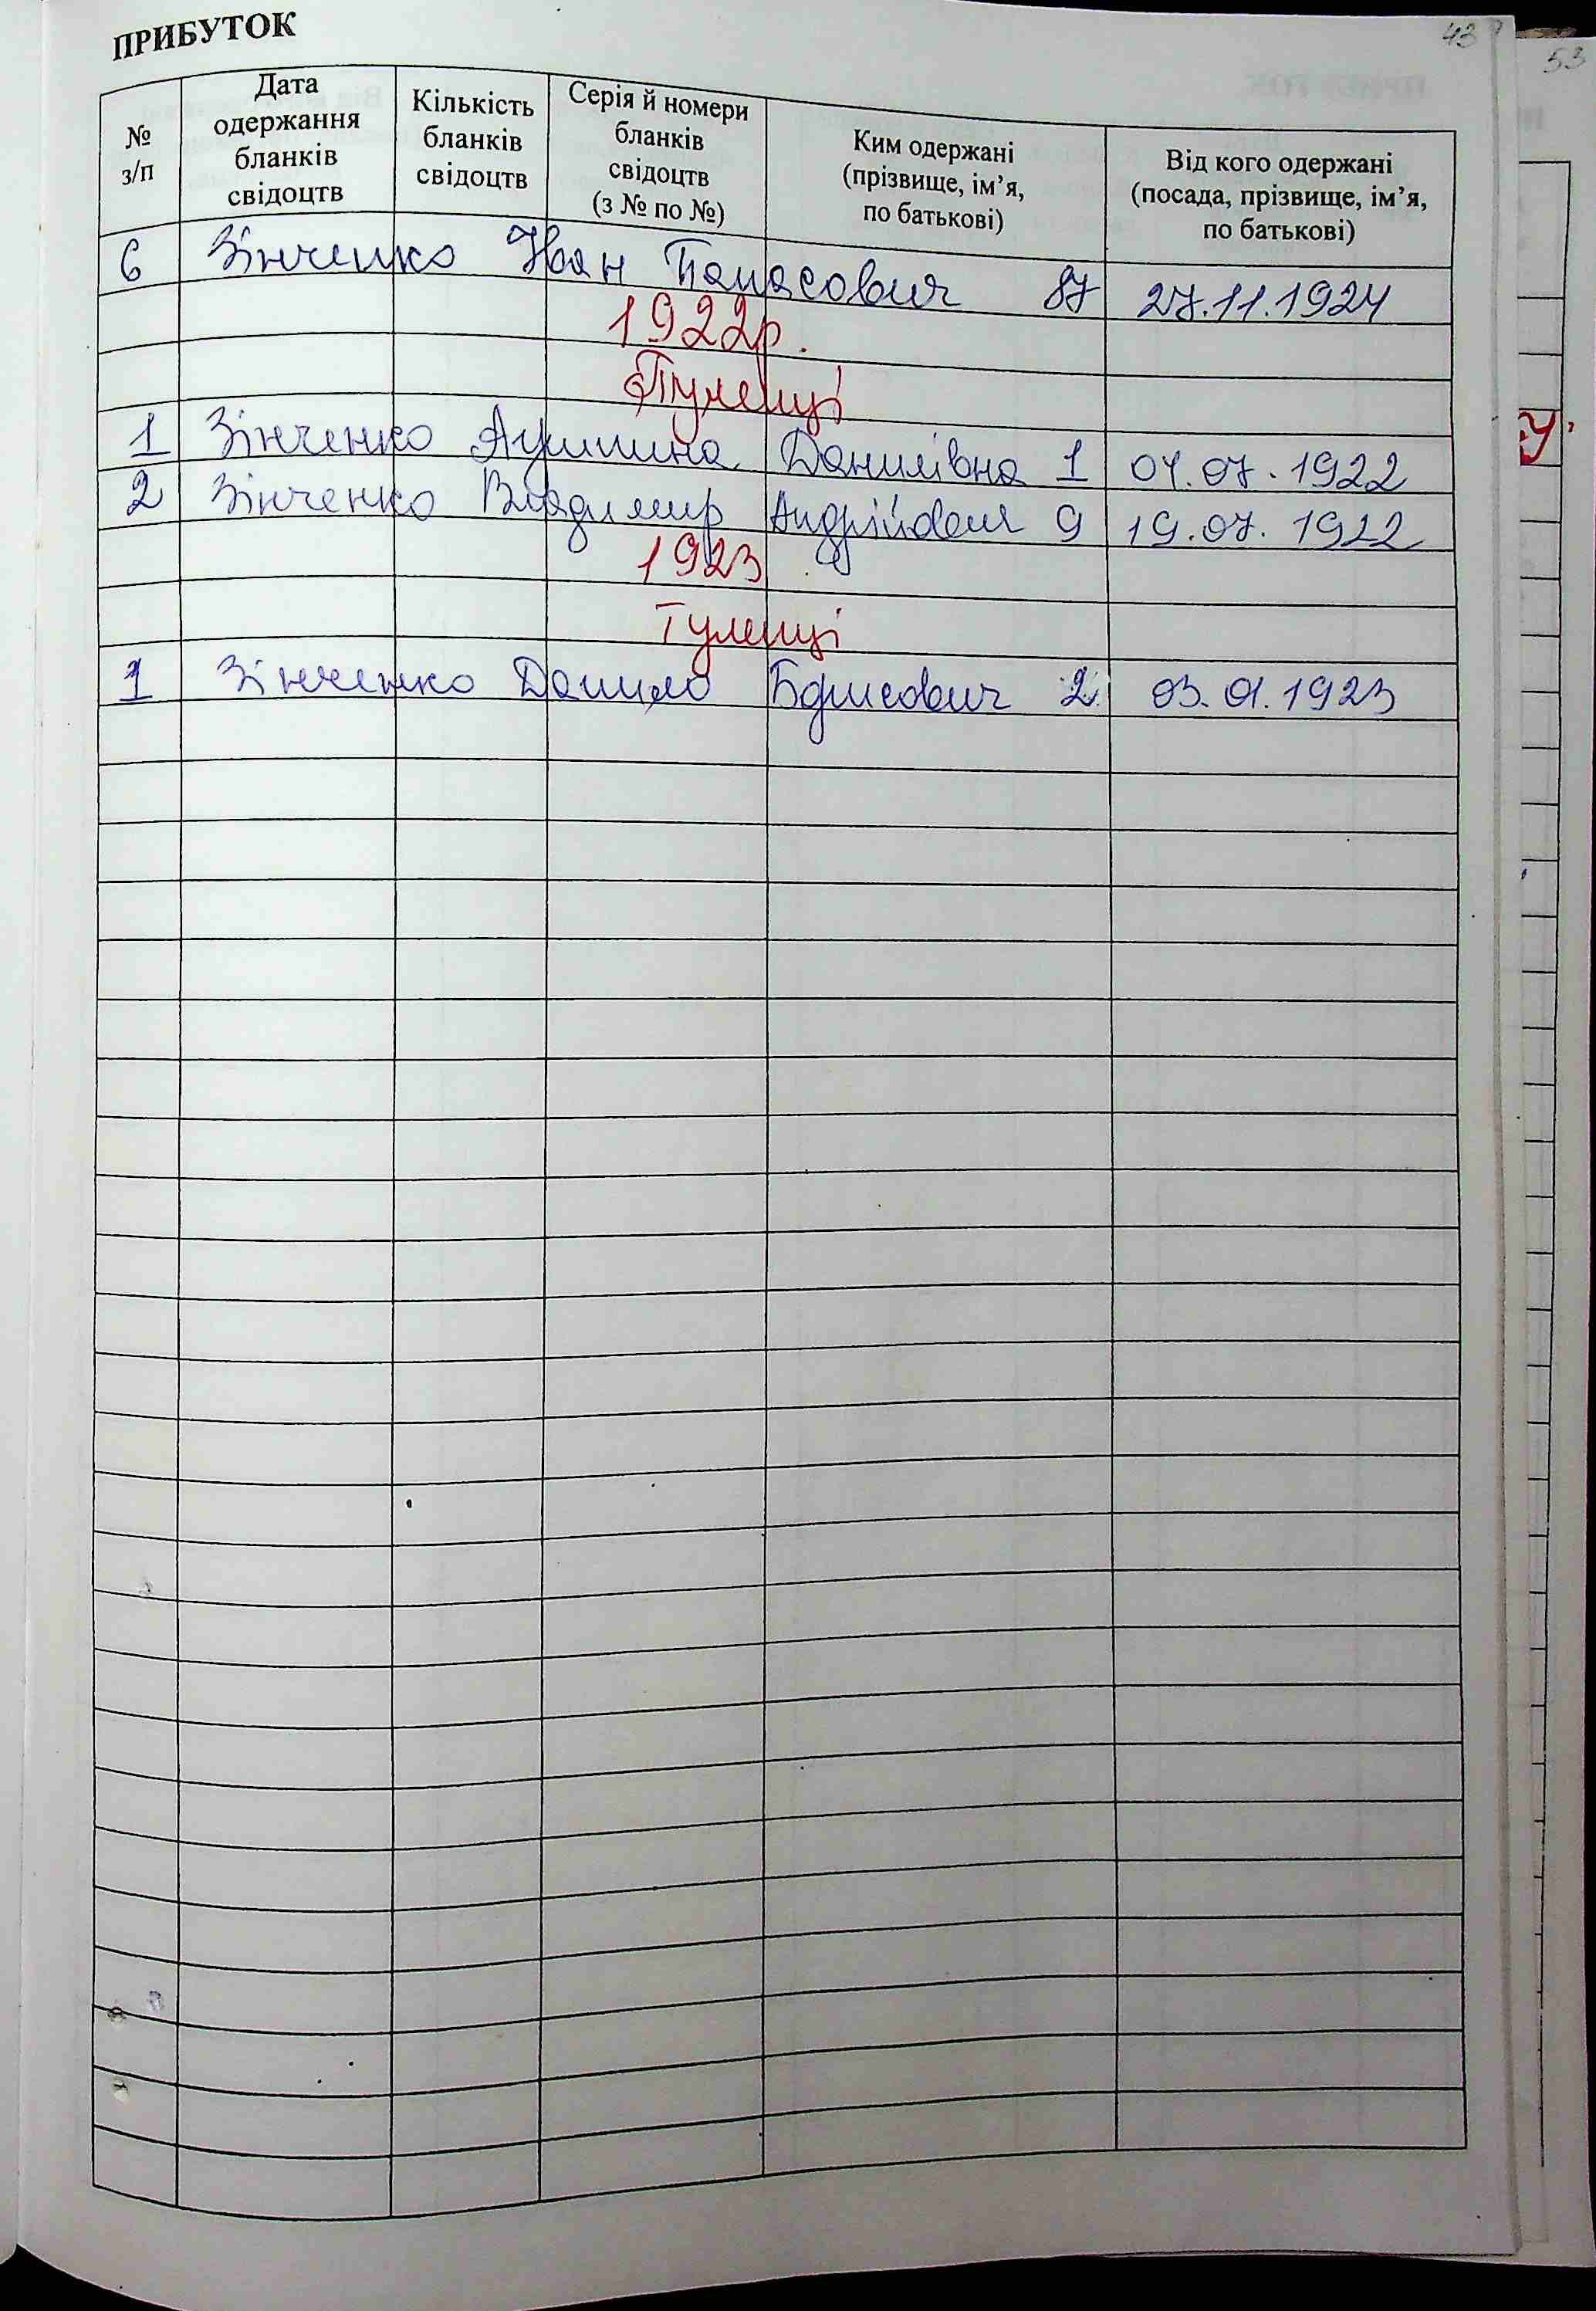 ПРИБУТОК
43
53
№ з/п
Дата одержання бланків свідоцтв
Кількість бланків свідоцтв
Серія й номери бланків свідоцтв (з № по №)
Ким одержані (прізвище, ім’я, по батькові)
Від кого одержані (посада, прізвище, ім’я, по батькові)
6 Зінченко Іван Панасович 87 27.11.1924
1922р.
Тулинці
1 Зінченко Данилівна 1 04.07.1922
2 Зінченко Владимир Андрійович 9 19.07.1922
1923
Тулинці
1 Зінченко Данило Борисович 2 03.01.1923